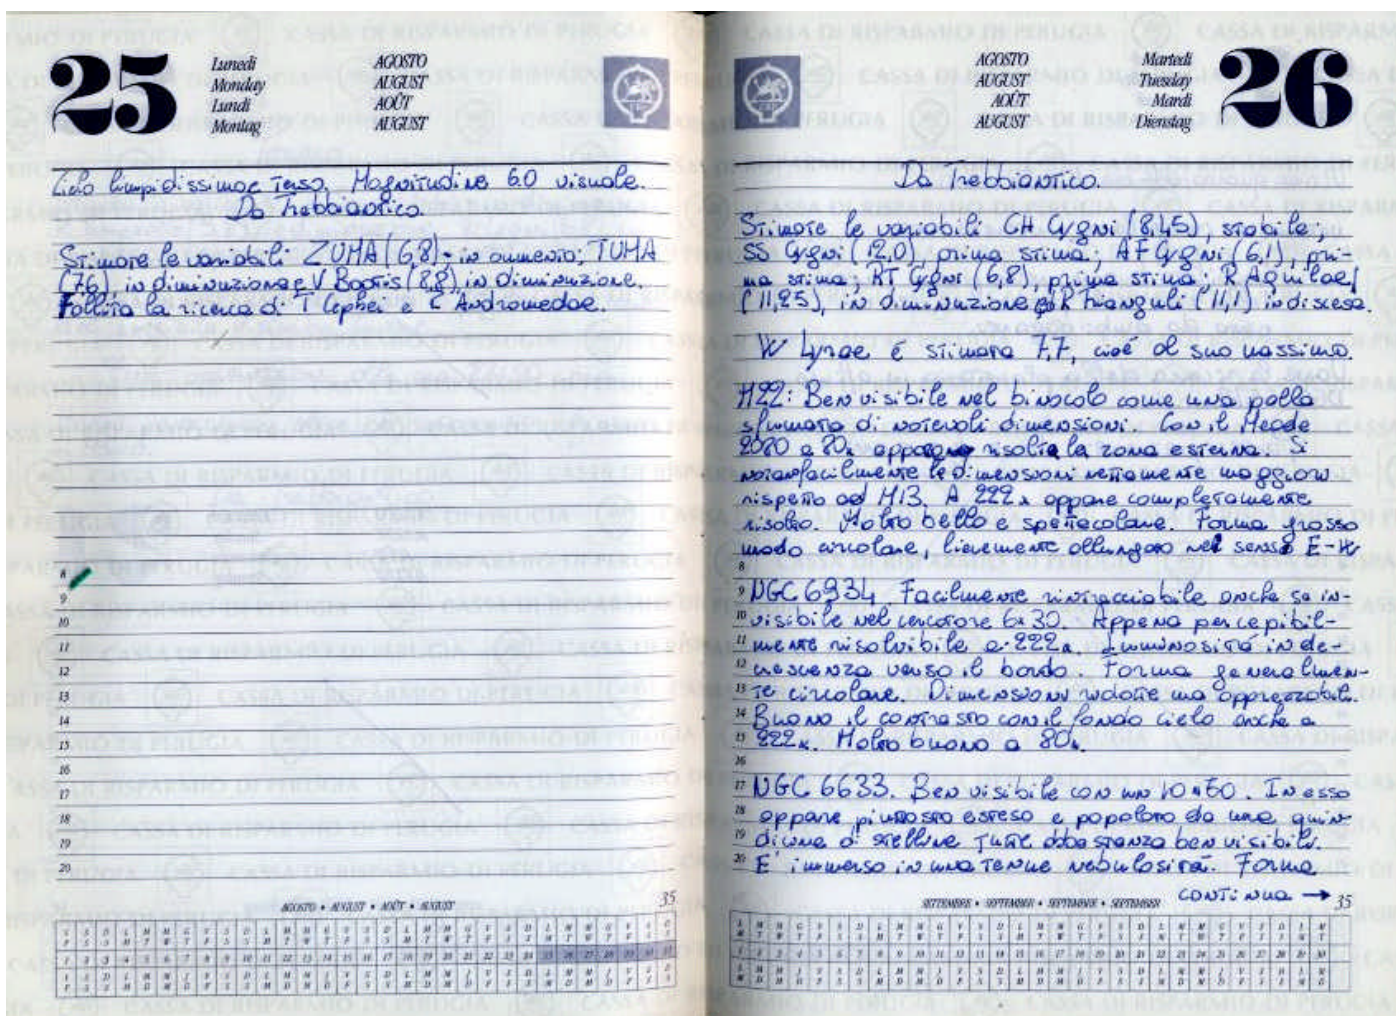 25
Lunedì
Monday
Lundi
Montag
AGOSTO
AUGUST
AOÛT
AUGUST
Cielo limpidissimo e terso. Magnitudine 6.0 visuale.
Da Trebbiantico.
Stimate le variabili ZUMA (6,8) in aumento; TUMA
(7.6), in diminuzione e V Bootis (8,8), in diminuzione.
Fallita la ricerca di T Cephei e Andromedae.
8
9
10
11
12
13
14
15
16
17
18
19
20
AGOSTO • AUGUST • AOÛT • AUGUST
35
26
AGOSTO
AUGUST
AOÛT
AUGUST
Martedì
Tuesday
Mardi
Dienstag
Da Trebbiantico.
Stimate le variabili CH Cygni (8,45) stabile
SS Cygni (12,0), prima stima; AF Cygni (6,1), pri-
ma stima; RT Cygni (6,8), prima stima; R Aquilae
(11,25), in diminuzione R Trianguli (11,1) in discesa.
W Lyrae è stimata 7,7, cioè al suo massimo.
M22: Ben visibile nel binocolo come una palla
sfumata di notevoli dimensioni. Con il Meade
2080 a 80x appare risolta la zona esterna. Si
notano facilmente le dimensioni nettamente maggiori
rispetto ad M13. A 222x appare completamente
risolto. Molto bello e spettacolare. Forma grosso
modo circolare, lievemente allungato nel senso E-W
8
9 NGC 6934. Facilmente rintracciabile anche se in-
10 visibile nel cercatore 6x30. Appena percepibil-
11 mente risolvibile a 222x. Luminosità in de-
12 crescenza verso il bordo. Forma generalmen-
13 te circolare. Dimensioni ridotte ma apprezzabili.
14 Buono il contrasto con il fondo cielo anche a
15 222x. Molto buono a 80x.
16
17 NGC 6633. Ben visibile con un 10x50. In esso
18 appare piuttosto esteso e popolato da una quin-
19 dicina di stelline tutte abbastanza ben visibili.
20 E' immerso in una tenue nebulosità. Forma
CONTINUA →
SETTEMBRE • SEPTEMBER • SEPTEMBRE • SEPTEMBER
35